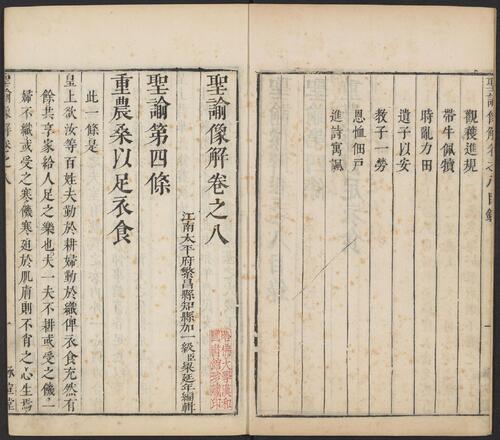 聖諭像解卷之八目錄
觀穫進規
帶牛佩犢
時亂力田
遺子以安
教子一勞
恩恤佃戶
進詩寓諷
聖諭像解卷之八
江南太平府繁昌縣知縣加一級臣梁延年編輯
哈佛大學漢和
圖書館珍藏印
聖諭第四條
重農桑以足衣食
此一條是
皇上欲汝等百姓夫勤於耕婦勤於織俾衣食充然有
餘共享家給人足之樂也夫一夫不耕或受之饑一
婦不織或受之寒饑寒廹於肌膚則不肖之心生焉
聖諭像解卷之八
一
承宣堂